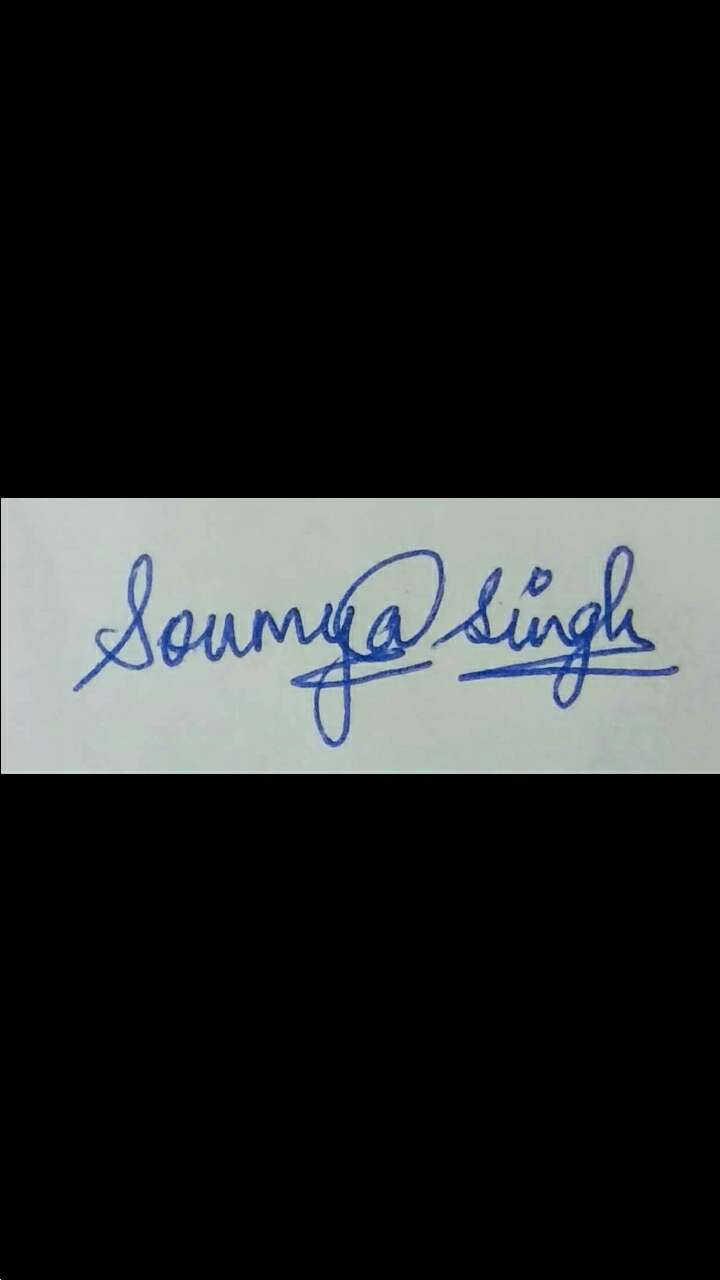 Soumya Singh